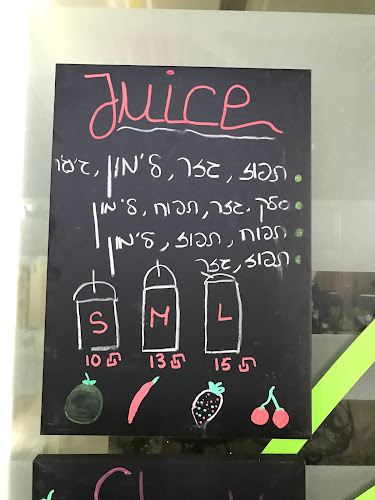 Juice
תפוז, גזר, לימון, ג׳ינג׳ר
סלק, גזר, תפוח, לימון
תפוח, תפוז, לימון
תפוז, גזר
S M L
10 ₪ 13 ₪ 15 ₪